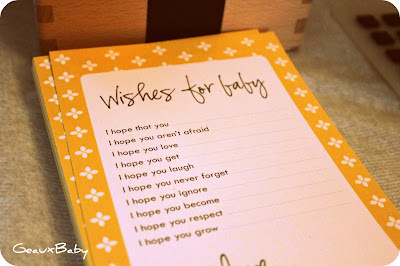 Wishes for baby
I hope that you
I hope you aren't afraid
I hope you love
I hope you get
I hope you laugh
I hope you never forget
I hope you ignore
I hope you become
I hope you respect
I hope you grow
GeauxBaby